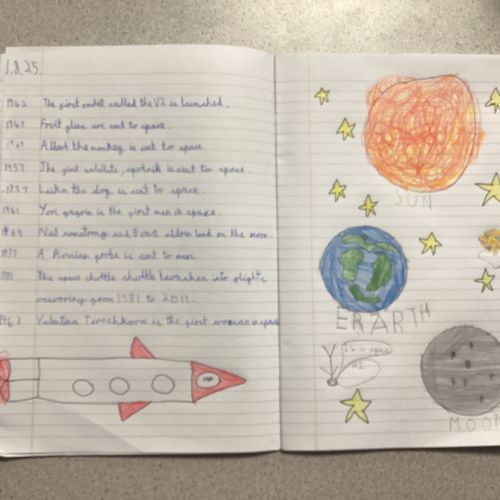 1.8.25.
1942 The first rocket called the V2 is launched.
1947 Fruit flies are sent to space.
1949 Albert the monkey is sent to space.
1957 The first satellite, sputnik is sent to space.
1957 Laika the dog is sent to space.
1961 Yuri gagrin is the first man in space.
1969 Neil armstrong and Buzz aldrin land on the moon.
1971 A Russian probe is sent to mars.
1981 The space shuttle shuttle launches into flight
occurring from 1981 to 2011.
1963 Valentina Tereshkova is the first woman in space
SUN
ERARTH
in space
MOON